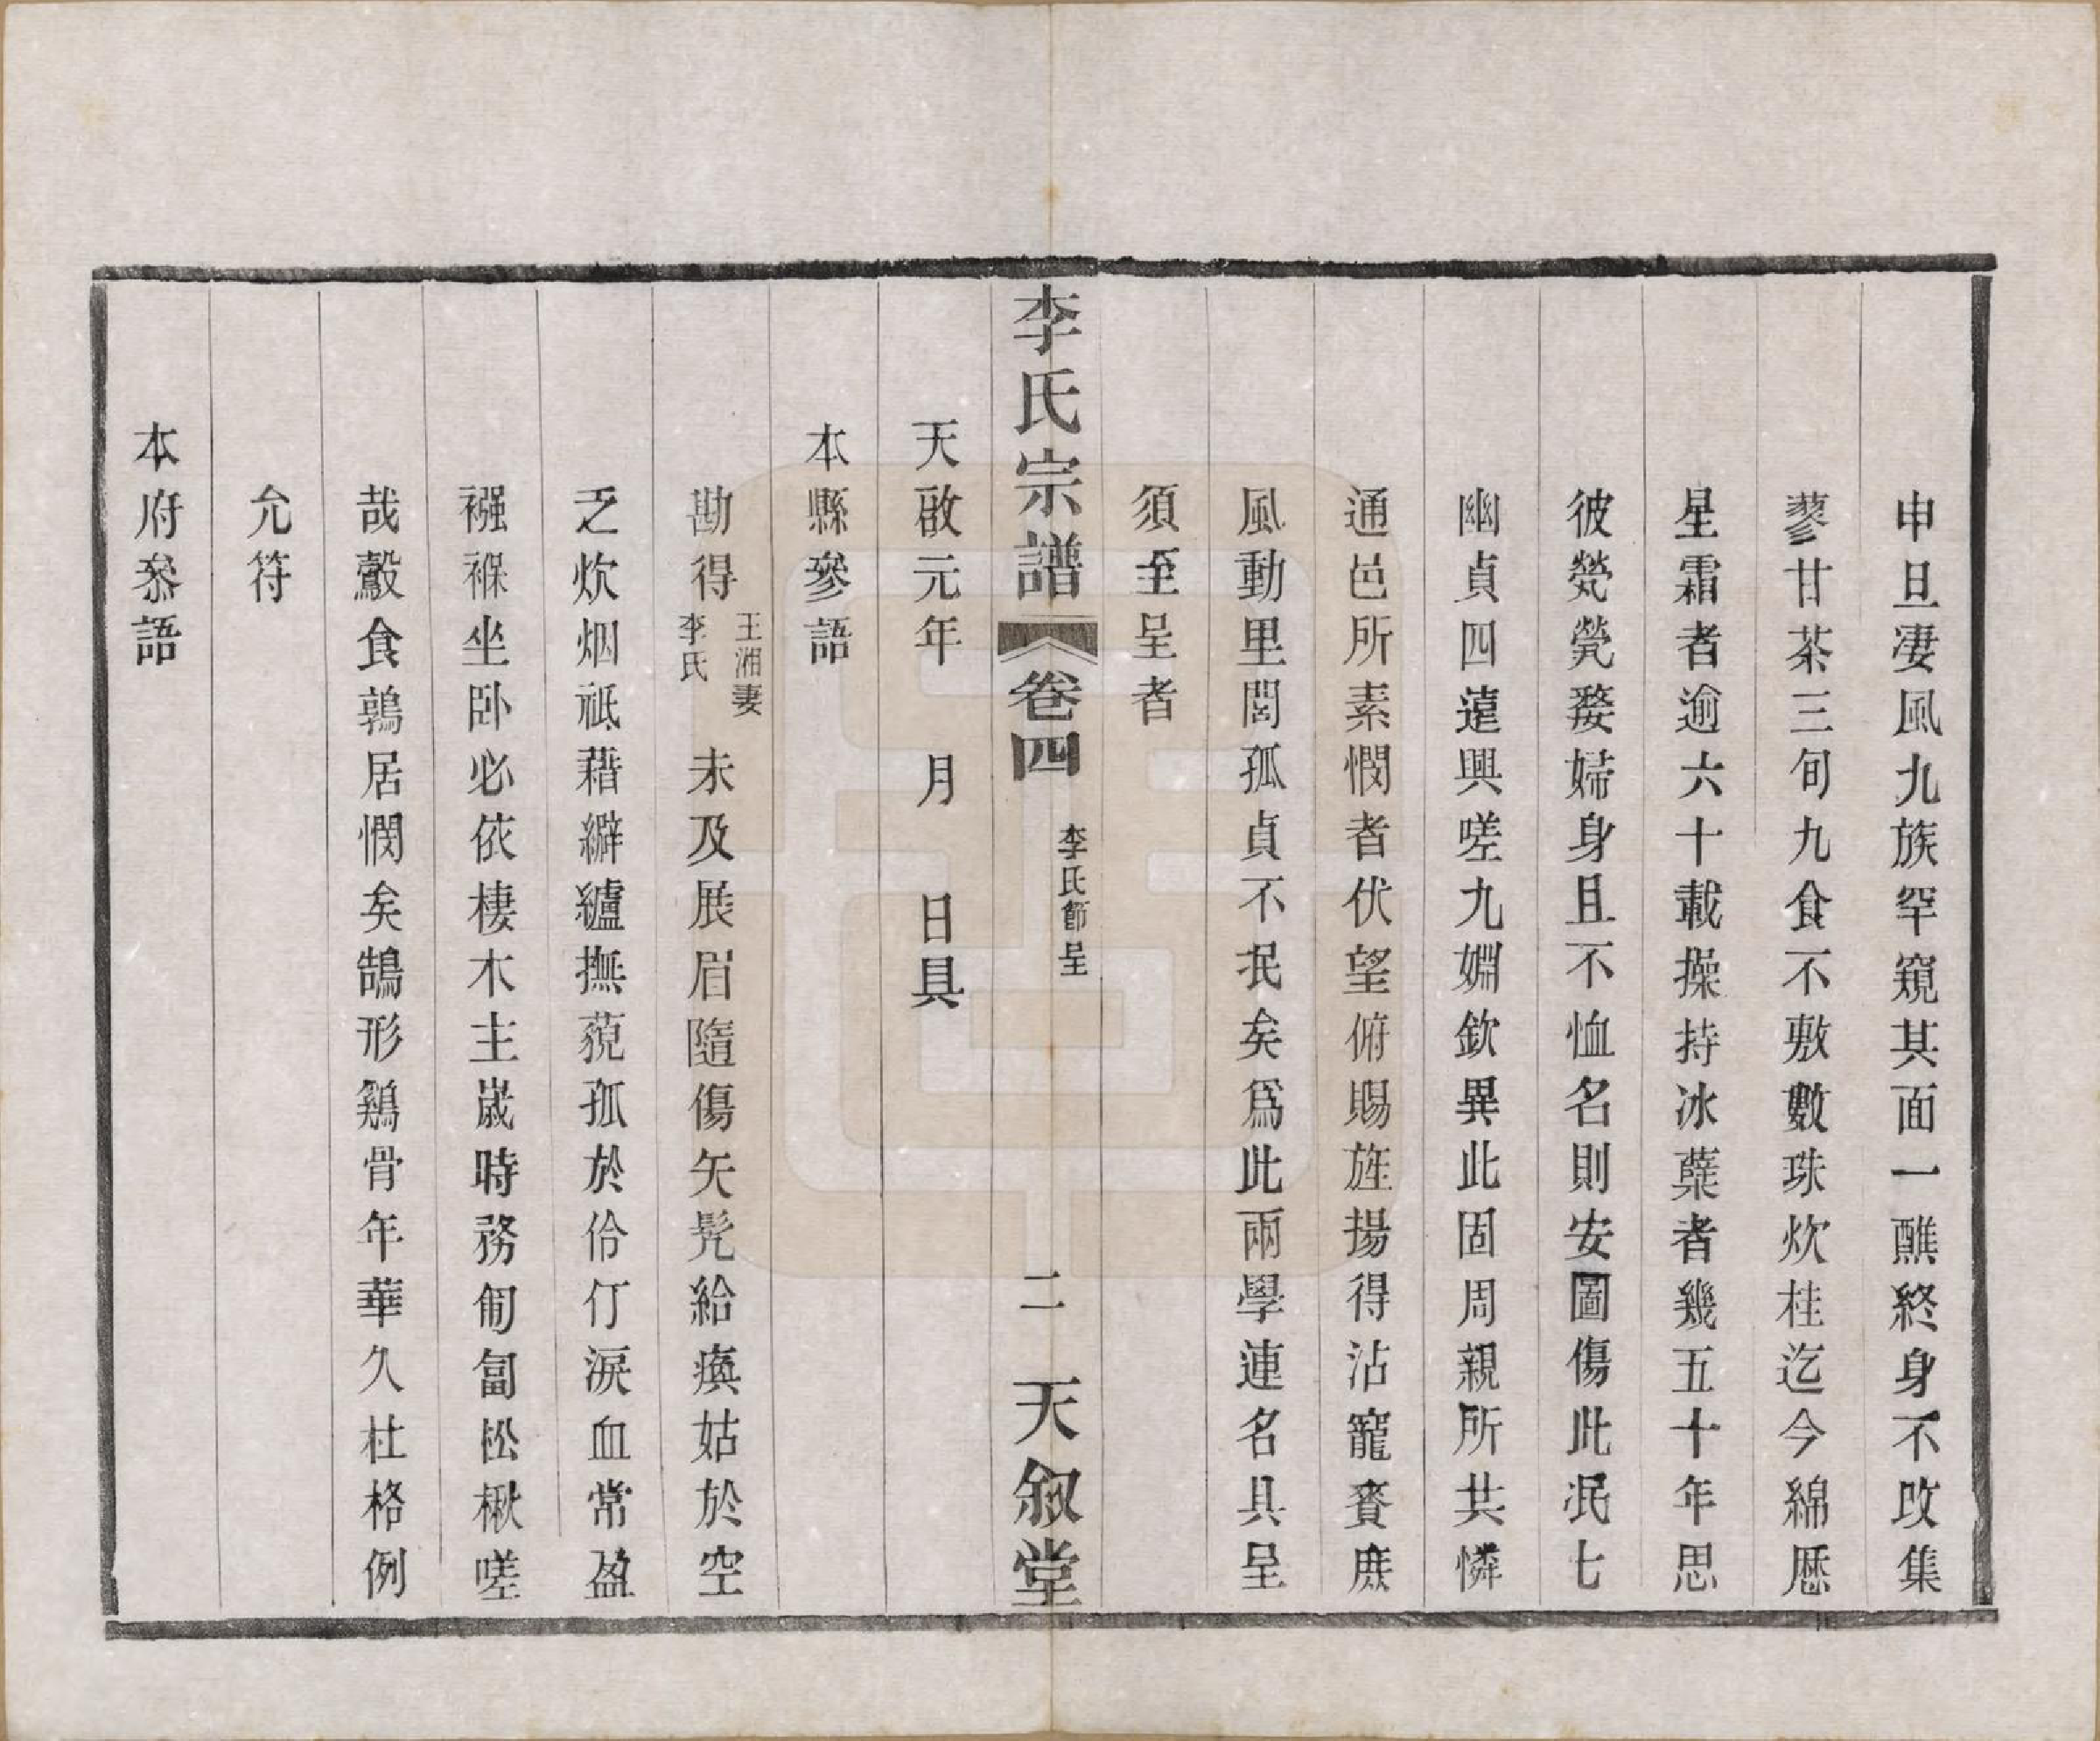 申旦凄風九族罕窺其面一醮終身不改集
蓼甘荼三旬九食不敷數珠炊桂迄今綿歷
星霜者逾六十載操持冰蘖者幾五十年思
彼煢煢嫠婦身且不恤名則安圖傷此泯七
幽貞四遠興嗟九婣欽異此固周親所共憐
通邑所素憫者伏望俯賜旌揚得沾寵賚庶
風動里閭孤貞不泯矣爲此兩學連名具呈
須至呈者
李氏宗譜 卷四 李氏節呈 二 天敘堂
天啟元年 月 日具
本縣參語
勘得王湘妻李氏 未及展眉隨傷矢髡給瘓姑於空
乏炊烟祗藉纈纑撫藐孤於伶仃淚血常盈
襁褓坐臥必依棲木主歲時務匍匐松楸嗟
哉鷇食鶉居憫矣鵠形鷄骨年華久杜格例
允符
本府叅語